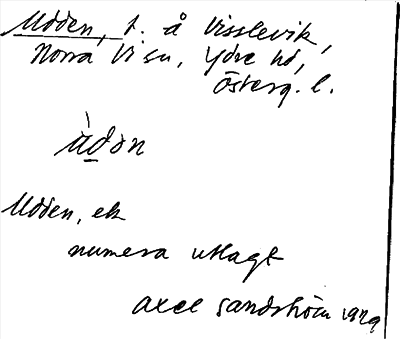 Udden, t. å Visslevik,
Norra Vi sn, Ydre hd,
Österg. l.
ùdən
Udden, ek
numera utlagt
Axel Sandström 1929